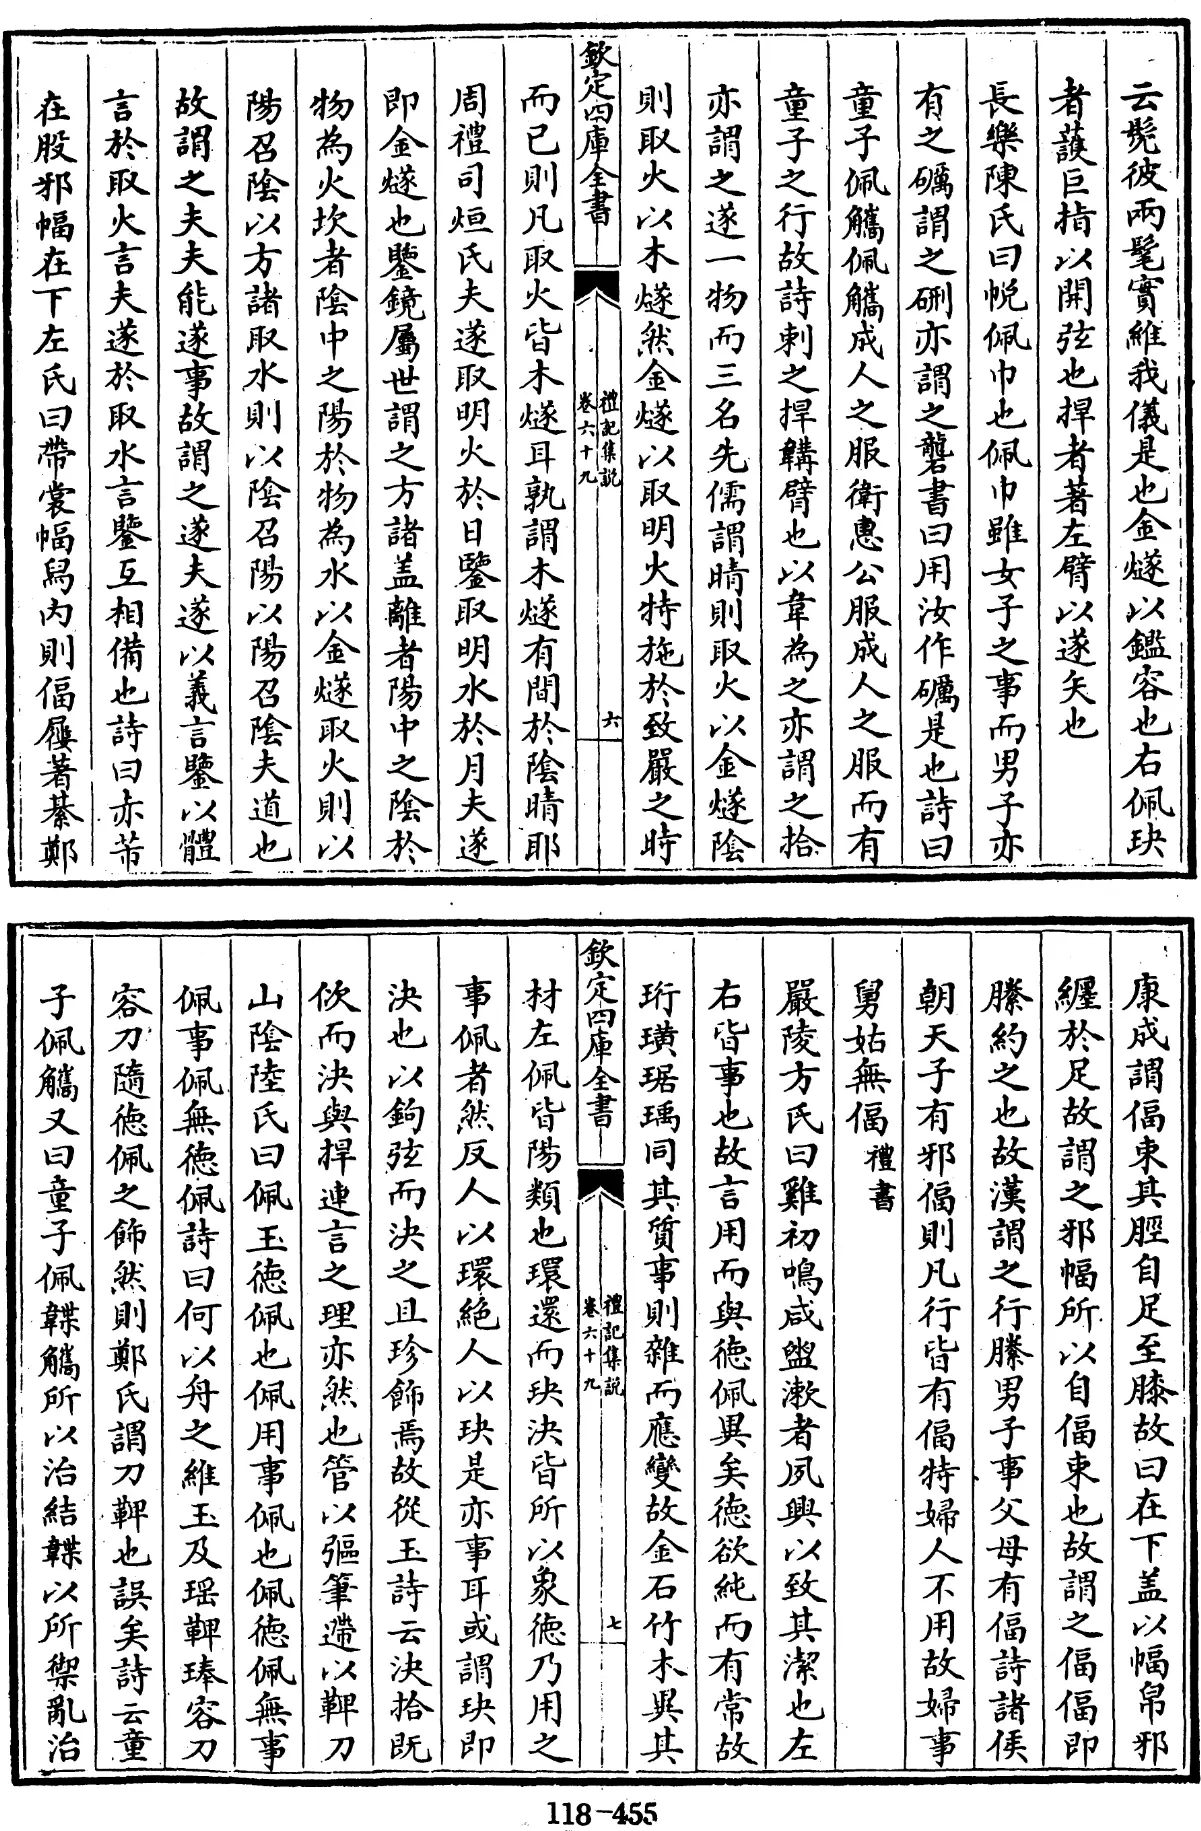 云髧彼兩髦實維我儀是也金燧以鑑容也右佩玦
者䕶巨指以開弦也捍者著左臂以遂矢也
長樂陳氏曰帨佩巾也佩巾雖女子之事而男子亦
有之礪謂之硎亦謂之礱書曰用汝作礪是也詩曰
童子佩觿佩觿成人之服衛惠公服成人之服而有
童子之行故詩刺之捍韝臂也以韋為之亦謂之拾
亦謂之遂一物而三名先儒謂晴則取火以金燧陰
則取火以木燧然金燧以取明火特施於致嚴之時
欽定四庫全書
禮記集說
卷六十九
六
而已則凡取火皆木燧耳孰謂木燧有間於陰晴耶
周禮司烜氏夫遂取明火於日鑒取明水於月夫遂
即金燧也鑒鏡屬世謂之方諸盖離者陽中之陰於
物為火坎者陰中之陽於物為水以金燧取火則以
陽召陰以方諸取水則以陰召陽以陽召陰夫道也
故謂之夫夫能遂事故謂之遂夫遂以義言鑒以體
言於取火言夫遂於取水言鑒互相備也詩曰赤芾
在股邪幅在下左氏曰帶裳幅舄内則偪屨著綦鄭
康成謂偪束其脛自足至膝故曰在下盖以幅帛邪
纒於足故謂之邪幅所以自偪束也故謂之偪偪即
縢約之也故漢謂之行縢男子事父母有偪詩諸侯
朝天子有邪偪則凡行皆有偪特婦人不用故婦事
舅姑無偪禮書
嚴陵方氏曰雞初鳴咸盥漱者夙興以致其潔也左
右皆事也故言用而與德佩異矣德欲純而有常故
珩璜琚瑀同其質事則雜而應變故金石竹木異其
欽定四庫全書
禮記集說
卷六十九
七
材左佩皆陽類也環還而玦決皆所以象德乃用之
事佩者然反人以環絶人以玦是亦事耳或謂玦即
決也以鉤弦而決之且珍飾焉故從玉詩云決拾既
佽而決與捍連言之理亦然也管以彄筆遰以鞞刀
山陰陸氏曰佩玉德佩也佩用事佩也佩德佩無事
佩事佩無德佩詩曰何以舟之維玉及瑶鞞琫容刀
容刀隨德佩之飾然則鄭氏謂刀鞞也誤矣詩云童
子佩觿又曰童子佩韘觿所以治結韘以所禦亂治
118-455